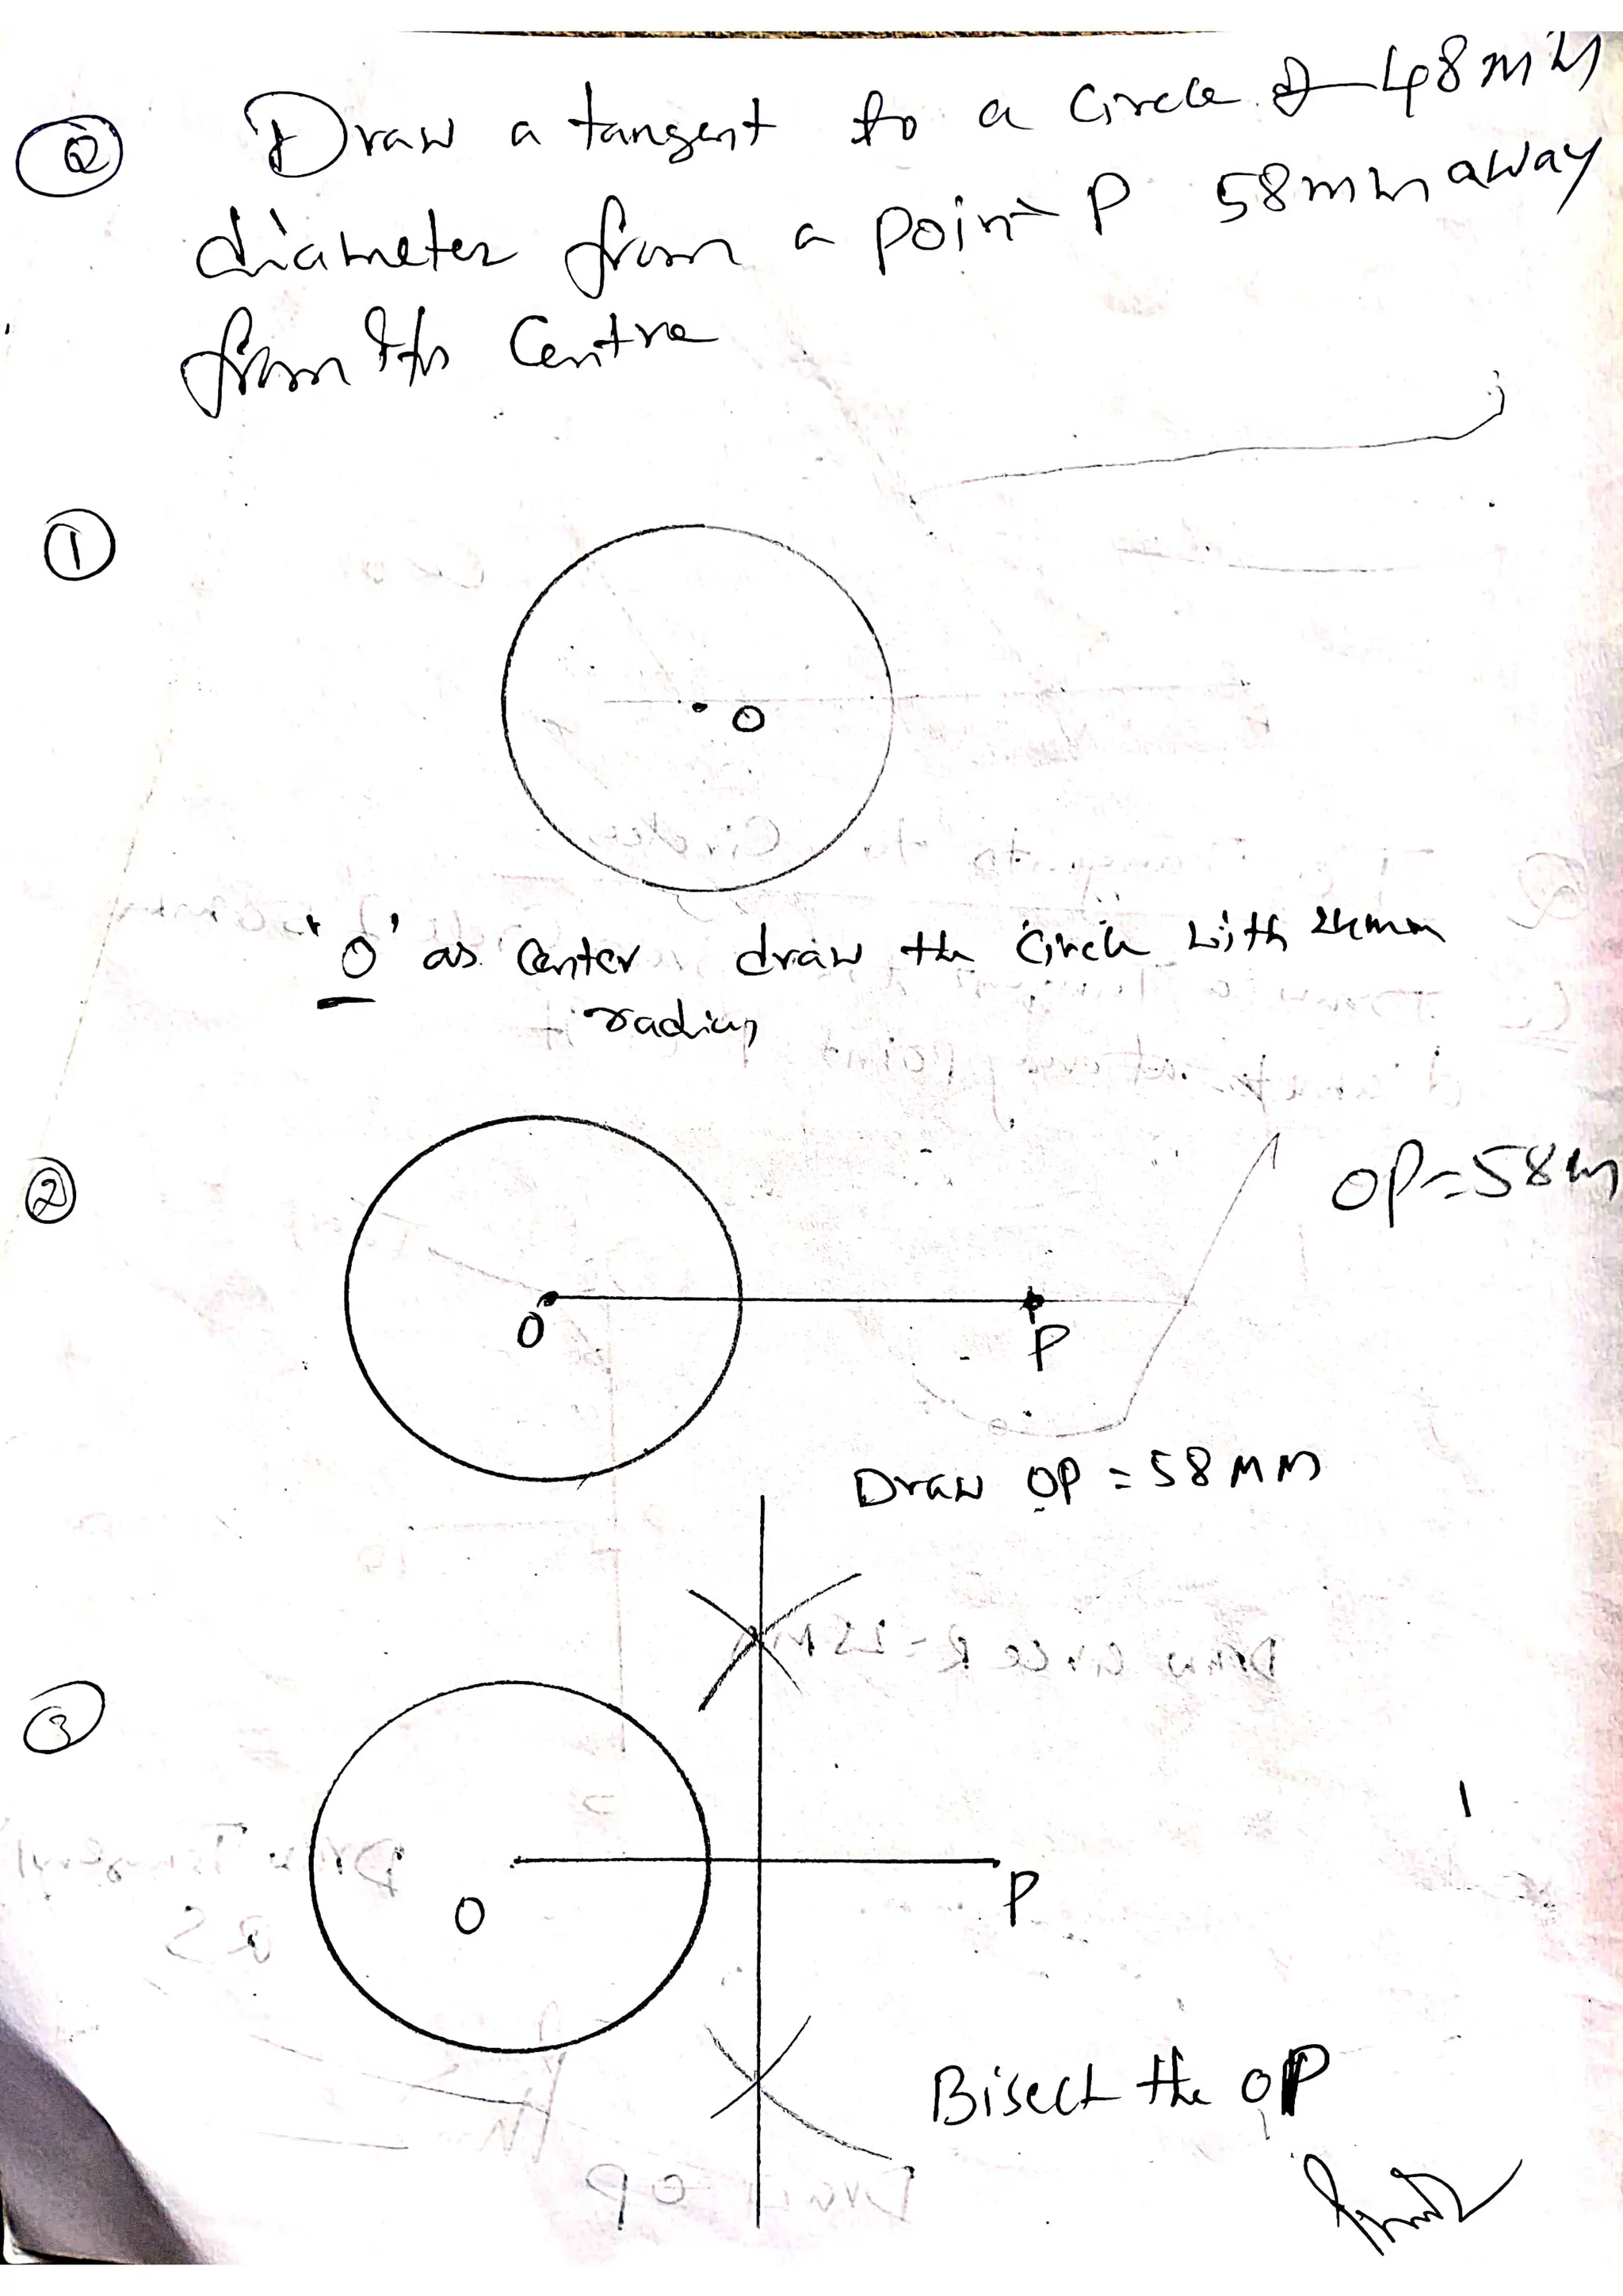 Q Draw a tangent to a circle of 48mm
diameter from a point P 58mm away
from its Centre
1
O
'O' as center draw the circle with 24mm
radius
2
OP=58m
O
P
Draw OP = 58 MM
3
O
P
Bisect the OP